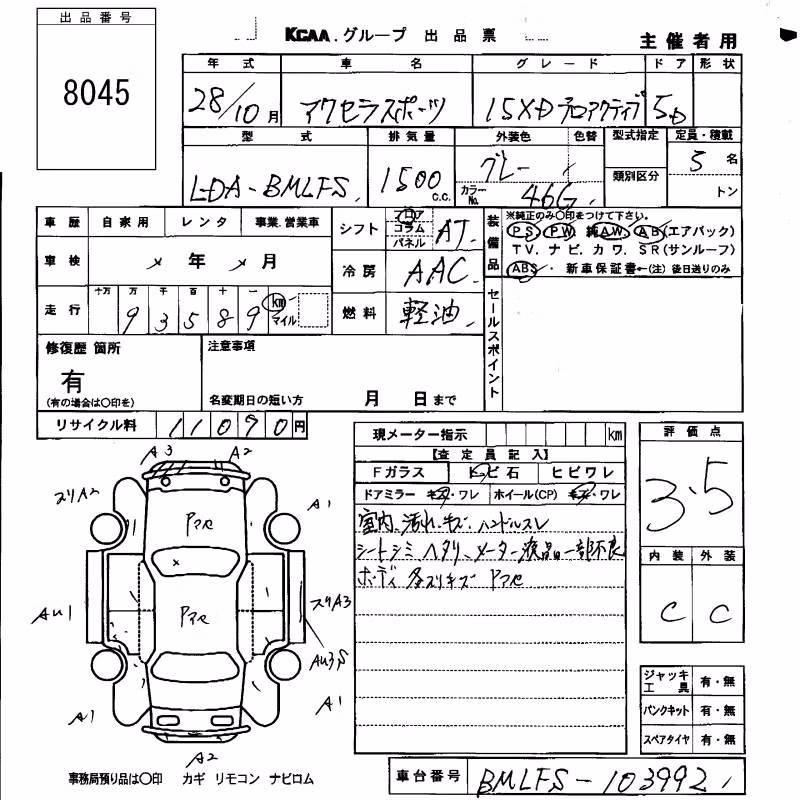 出品番号
8045
KCAA.グループ 出品票
主催者用
年式 車名 グレード ドア 形状
28/10月 アクセラスポーツ 15XD プロアクティブ 5D
型式 排気量 外装色 色替 型式指定 定員・積載
LDA-BMLFS 1500 c.c. グレー 類別区分 5名
カラーNo. 46G トン
車歴 自家用 レンタ 事業.営業車
シフト フロア コラム パネル AT
装備品
※純正のみ〇印をつけて下さい。
PS PW 純AW AB(エアバック)
TV.ナビ.カワ.SR(サンルーフ)
ABS 新車保証書←(注)後日送りのみ
車検 年 月
冷房 AAC
走行 十万 万 千 百 十 一
93589 km マイル
燃料 軽油
セールスポイント
修復歴 箇所
有
(有の場合は〇印を)
注意事項
名変期日の短い方 月 日まで
リサイクル料 11090円
現メーター指示 km
【査定員記入】
Fガラス トビ石 ヒビワレ
ドアミラー キズ・ワレ ホイール(CP) キズ・ワレ
室内、汚れ.キズ.ハンドルスレ
シートシミ ヘタリ、メーター液晶一部不良
ボディ 各スリキズ Pアセ
評価点
3.5
内装 外装
C C
A3 A2
スリA2 A1
Pアセ
Pアセ
AU1 スリA3
AU3,S
A1 A1
A2
ジャッキ工具 有・無
パンクキット 有・無
スペアタイヤ 有・無
事務局預り品は〇印 カギ リモコン ナビロム
車台番号 BMLFS-103992